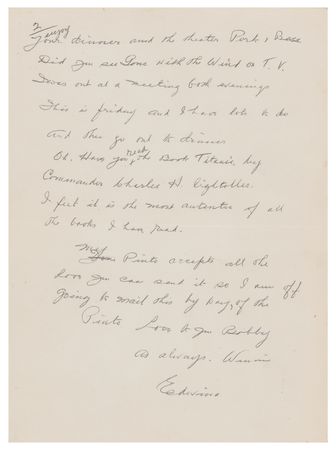 2
enjoy
your dinner and the theater Park, & Bess
Did you see Gone With the Wind on T.V.
I was out at a meeting both evenings
This is friday and I have lots to do
and then go out to dinner
Oh. Have you read the Book Titanic by
Commander Charles H. Lightoller.
I felt it is the most autentic of all
the books I have read.
My Pinto accepts all the
love you can send it so I am off
going to mail this by way of the
Pinto Love to you Bobby
as always.
Edwina